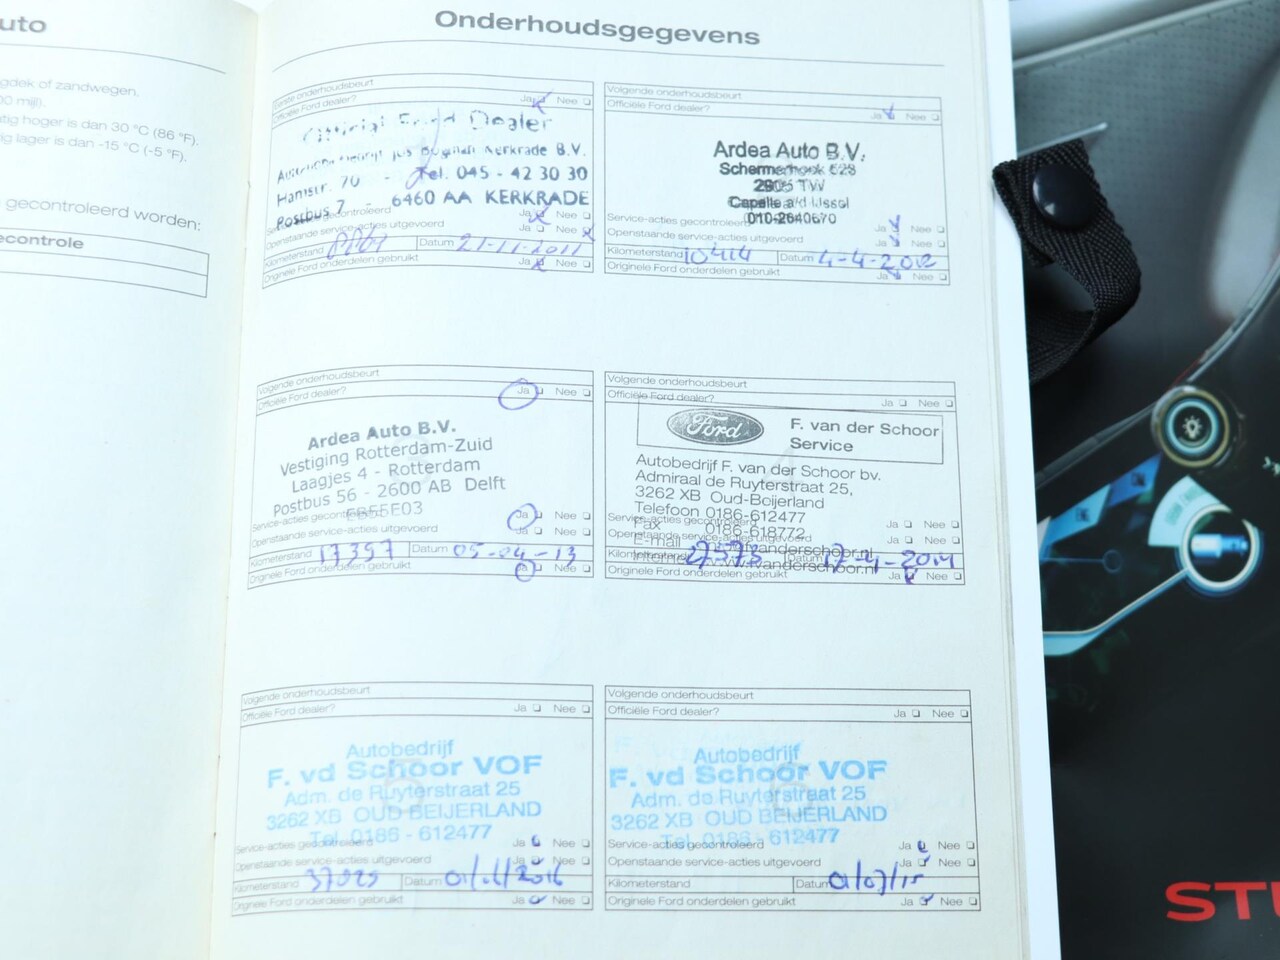 uto
gdek of zandwegen.
00 mijl).
tig hoger is dan 30 °C (86 °F).
ig lager is dan -15 °C (-5 °F).
gecontroleerd worden:
econtrole
Onderhoudsgegevens
onderhoudsbeurt
Officiële Ford dealer? Ja Nee
Dealer
Kerkrade B.V.
Hamstr. 70 - Tel. 045 - 42 30 30
Postbus 7 - 6460 AA KERKRADE
gecontroleerd Ja Nee
Openstaande service-acties uitgevoerd Ja Nee
Kilometerstand Datum 21-11-2011
Originele Ford onderdelen gebruikt Ja Nee
Volgende onderhoudsbeurt
Officiële Ford dealer? Ja Nee
Ardea Auto B.V.
TW
Capelle a/d IJssel
Service-acties gecontroleerd 010-2640670 Ja Nee
Openstaande service-acties uitgevoerd Ja Nee
Kilometerstand 10414 Datum 4-4-2012
Originele Ford onderdelen gebruikt Ja Nee
Volgende onderhoudsbeurt
Officiële Ford dealer? Ja Nee
Ardea Auto B.V.
Vestiging Rotterdam-Zuid
Laagjes 4 - Rotterdam
Postbus 56 - 2600 AB Delft
Service-acties gecontroleerd Ja Nee
Openstaande service-acties uitgevoerd Ja Nee
Kilometerstand 17357 Datum 05-04-13
Originele Ford onderdelen gebruikt Ja Nee
Volgende onderhoudsbeurt
Officiële Ford dealer? Ja Nee
Ford F. van der Schoor
Service
Autobedrijf F. van der Schoor bv.
Admiraal de Ruyterstraat 25,
3262 XB Oud-Beijerland
Telefoon 0186-612477
Service-acties gecontroleerd Ja Nee
Fax 0186-618772
Openstaande service-acties uitgevoerd Ja Nee
E-mail
Kilometerstand 27373 Datum 17-4-2014
Originele Ford onderdelen gebruikt Ja Nee
Volgende onderhoudsbeurt
Officiële Ford dealer? Ja Nee
Autobedrijf
F. vd Schoor VOF
Adm. de Ruyterstraat 25
3262 XB OUD BEIJERLAND
Tel. 0186 - 612477
Service-acties gecontroleerd Ja Nee
Openstaande service-acties uitgevoerd Ja Nee
Kilometerstand Datum
Originele Ford onderdelen gebruikt Ja Nee
Volgende onderhoudsbeurt
Officiële Ford dealer? Ja Nee
Autobedrijf
F. vd Schoor VOF
Adm. de Ruyterstraat 25
3262 XB OUD BEIJERLAND
Tel. 0186 - 612477
Service-acties gecontroleerd Ja Nee
Openstaande service-acties uitgevoerd Ja Nee
Kilometerstand Datum 01/07/15
Originele Ford onderdelen gebruikt Ja Nee